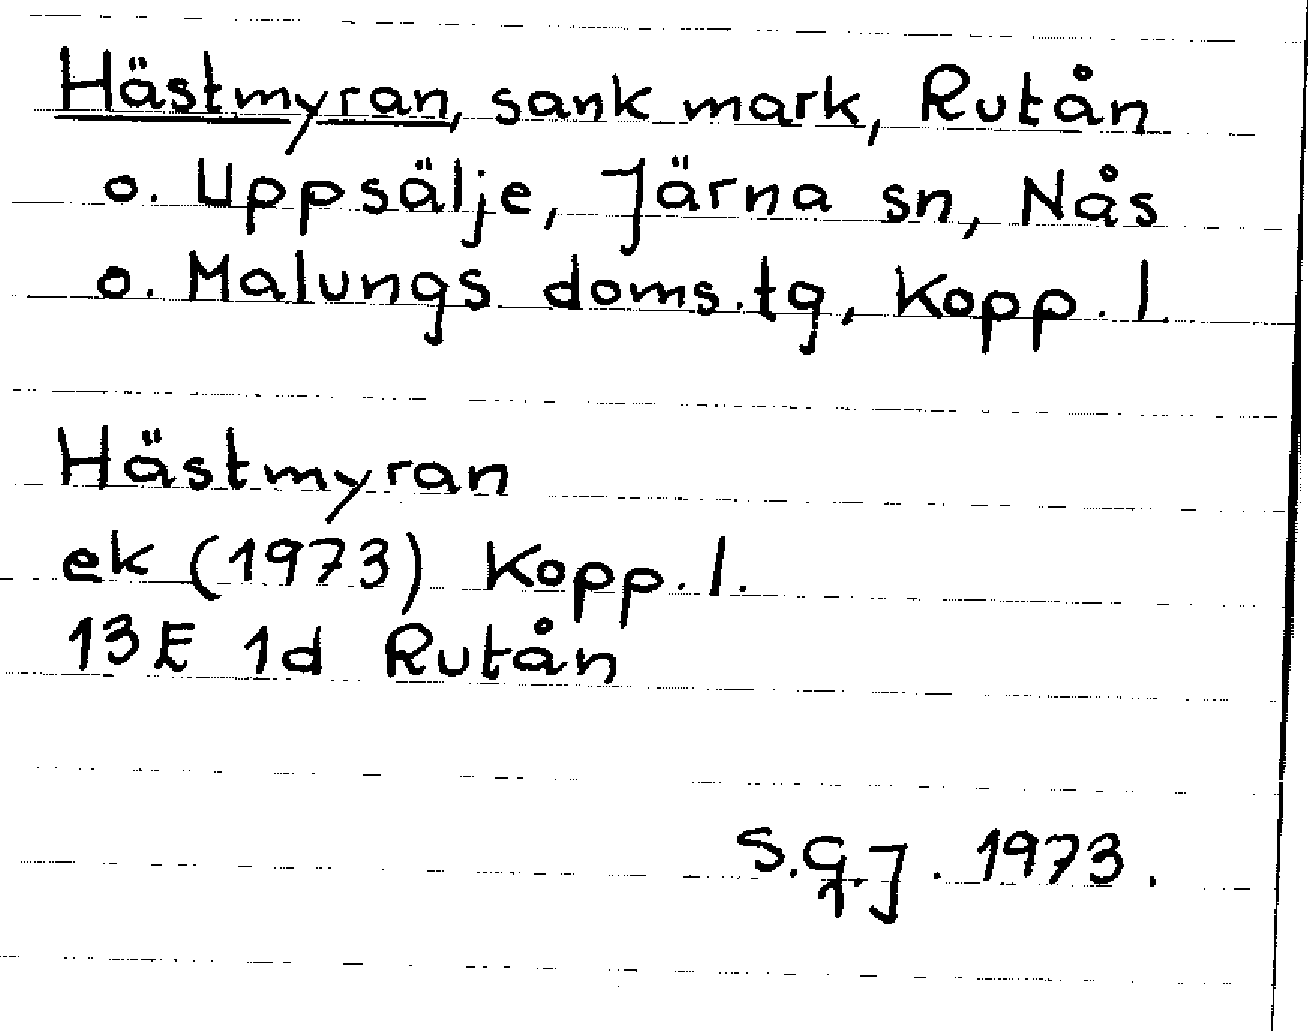 Hästmyran, sank mark, Rutån
o. Uppsälje, Järna sn, Nås
o. Malungs doms.tg, Kopp. l.
Hästmyran
ek (1973) Kopp. l.
13E 1d Rutån
S.G.J. 1973.